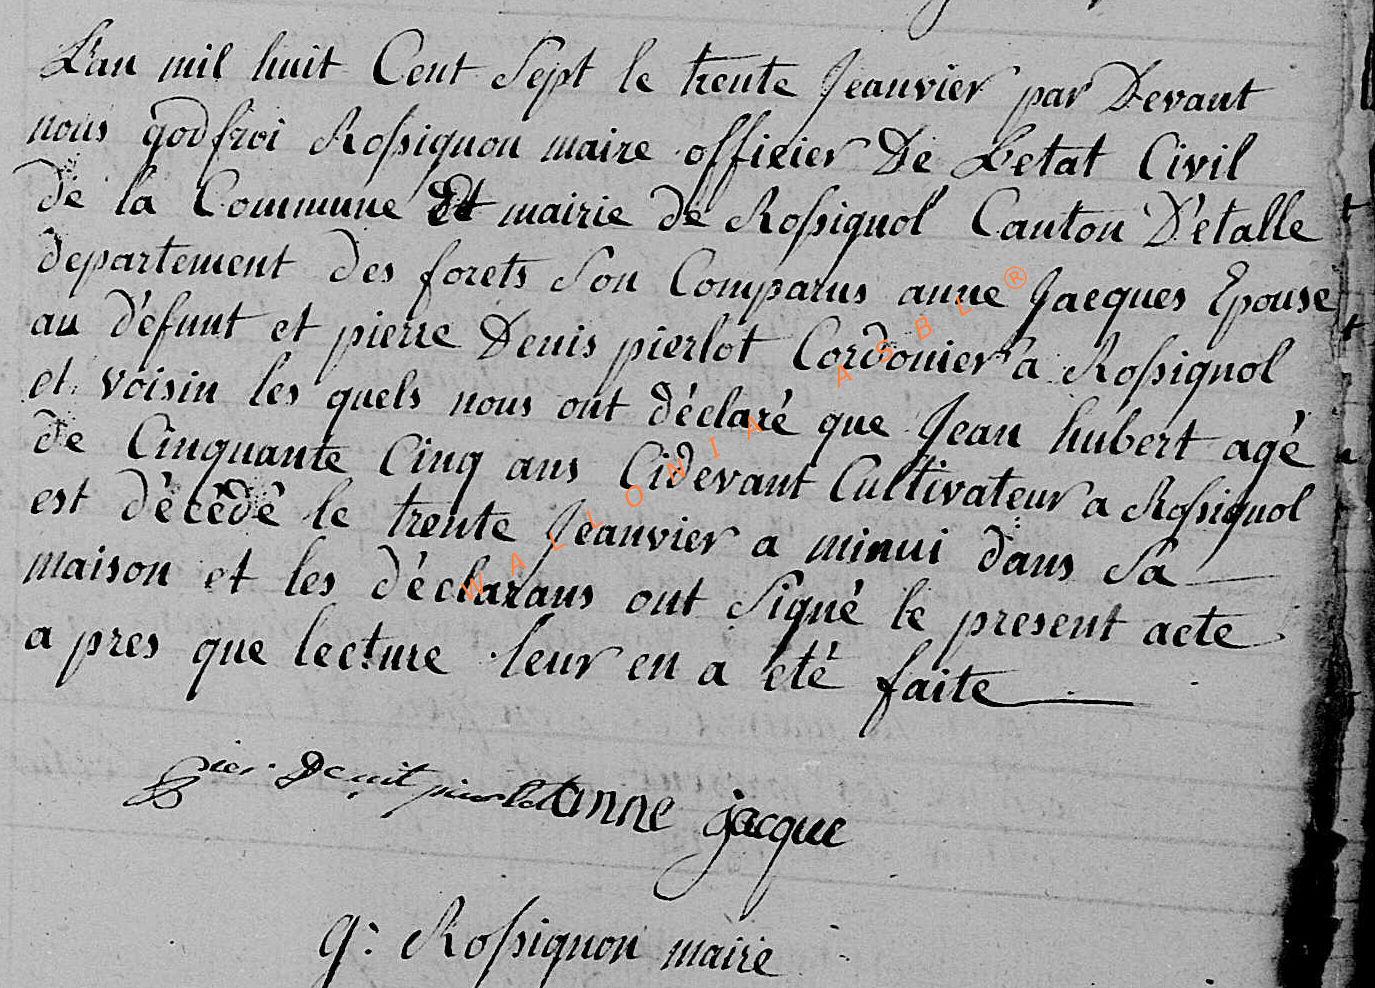 L'an mil huit Cent Sept le trente Jeanvier par Devant
nous godfroi Rossignon maire officier De L'etat Civil
de la Commune Et mairie de Rossignol Canton D'étalle
departement des forets Son Comparus anne Jacques Epouse
au Défunt et pierre Denis pierlot Cordonier a Rossignol
et voisin les quels nous ont déclaré que Jean hubert agé
de Cinquante Cinq ans Cidevant Cultivateur a Rossignol
est décédé le trente Jeanvier a minui dans Sa
maison et les déclarans ont Signé le present acte
a pres que lecture leur en a été faite
pier Denit pierlot anne jacque
g: Rossignon maire
WALLONIA ASBL ®